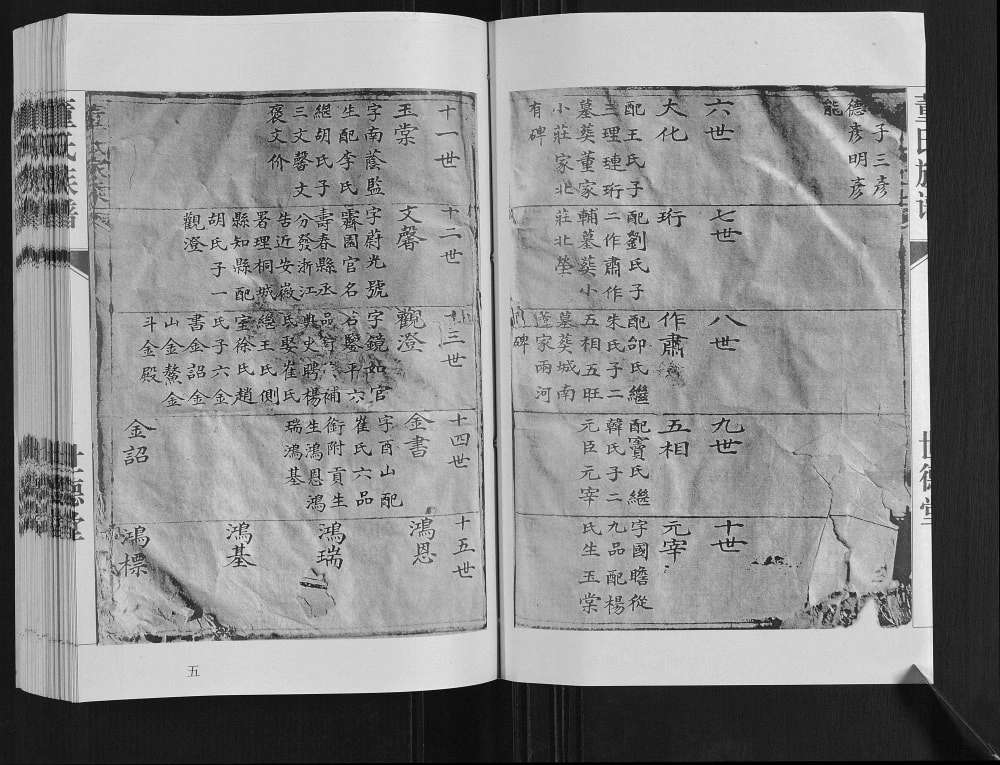 子三彥
德彥明彥
能
六世
大化
配王氏子
三理璉珩
墓葬董家
小莊家北
有碑
七世
珩
配劉氏子
二作肅作
輔墓葬小
莊北塋
八世
作肅
配邰氏繼
朱氏子二
五相五旺
墓葬城南
董家兩河
碑
九世
五相
配竇氏繼
韓氏子二
元臣元宰
十世
元宰
字國瞻從
九品配楊
氏生玉棠
十一世
玉棠
字南蔭監
生配李氏
繼胡氏子
三文馨文
褒文价
十二世
文馨
字蔚光號
霽園官名
壽春縣丞
分發浙江
告近安徽
署理桐城
縣知縣配
胡氏子一
觀澄
十三世
觀澄
字鏡如官
名鑒平六
品 補
典史聘楊
氏娶崔氏
繼王氏側
室徐氏趙
氏子六金
書金詔金
山金鰲金
斗金殿
十四世
金書
字酉山配
崔氏六品
銜附貢生
生鴻恩鴻
瑞鴻基
金詔
十五世
鴻恩
鴻瑞
鴻基
鴻標
董氏族譜
世德堂
五